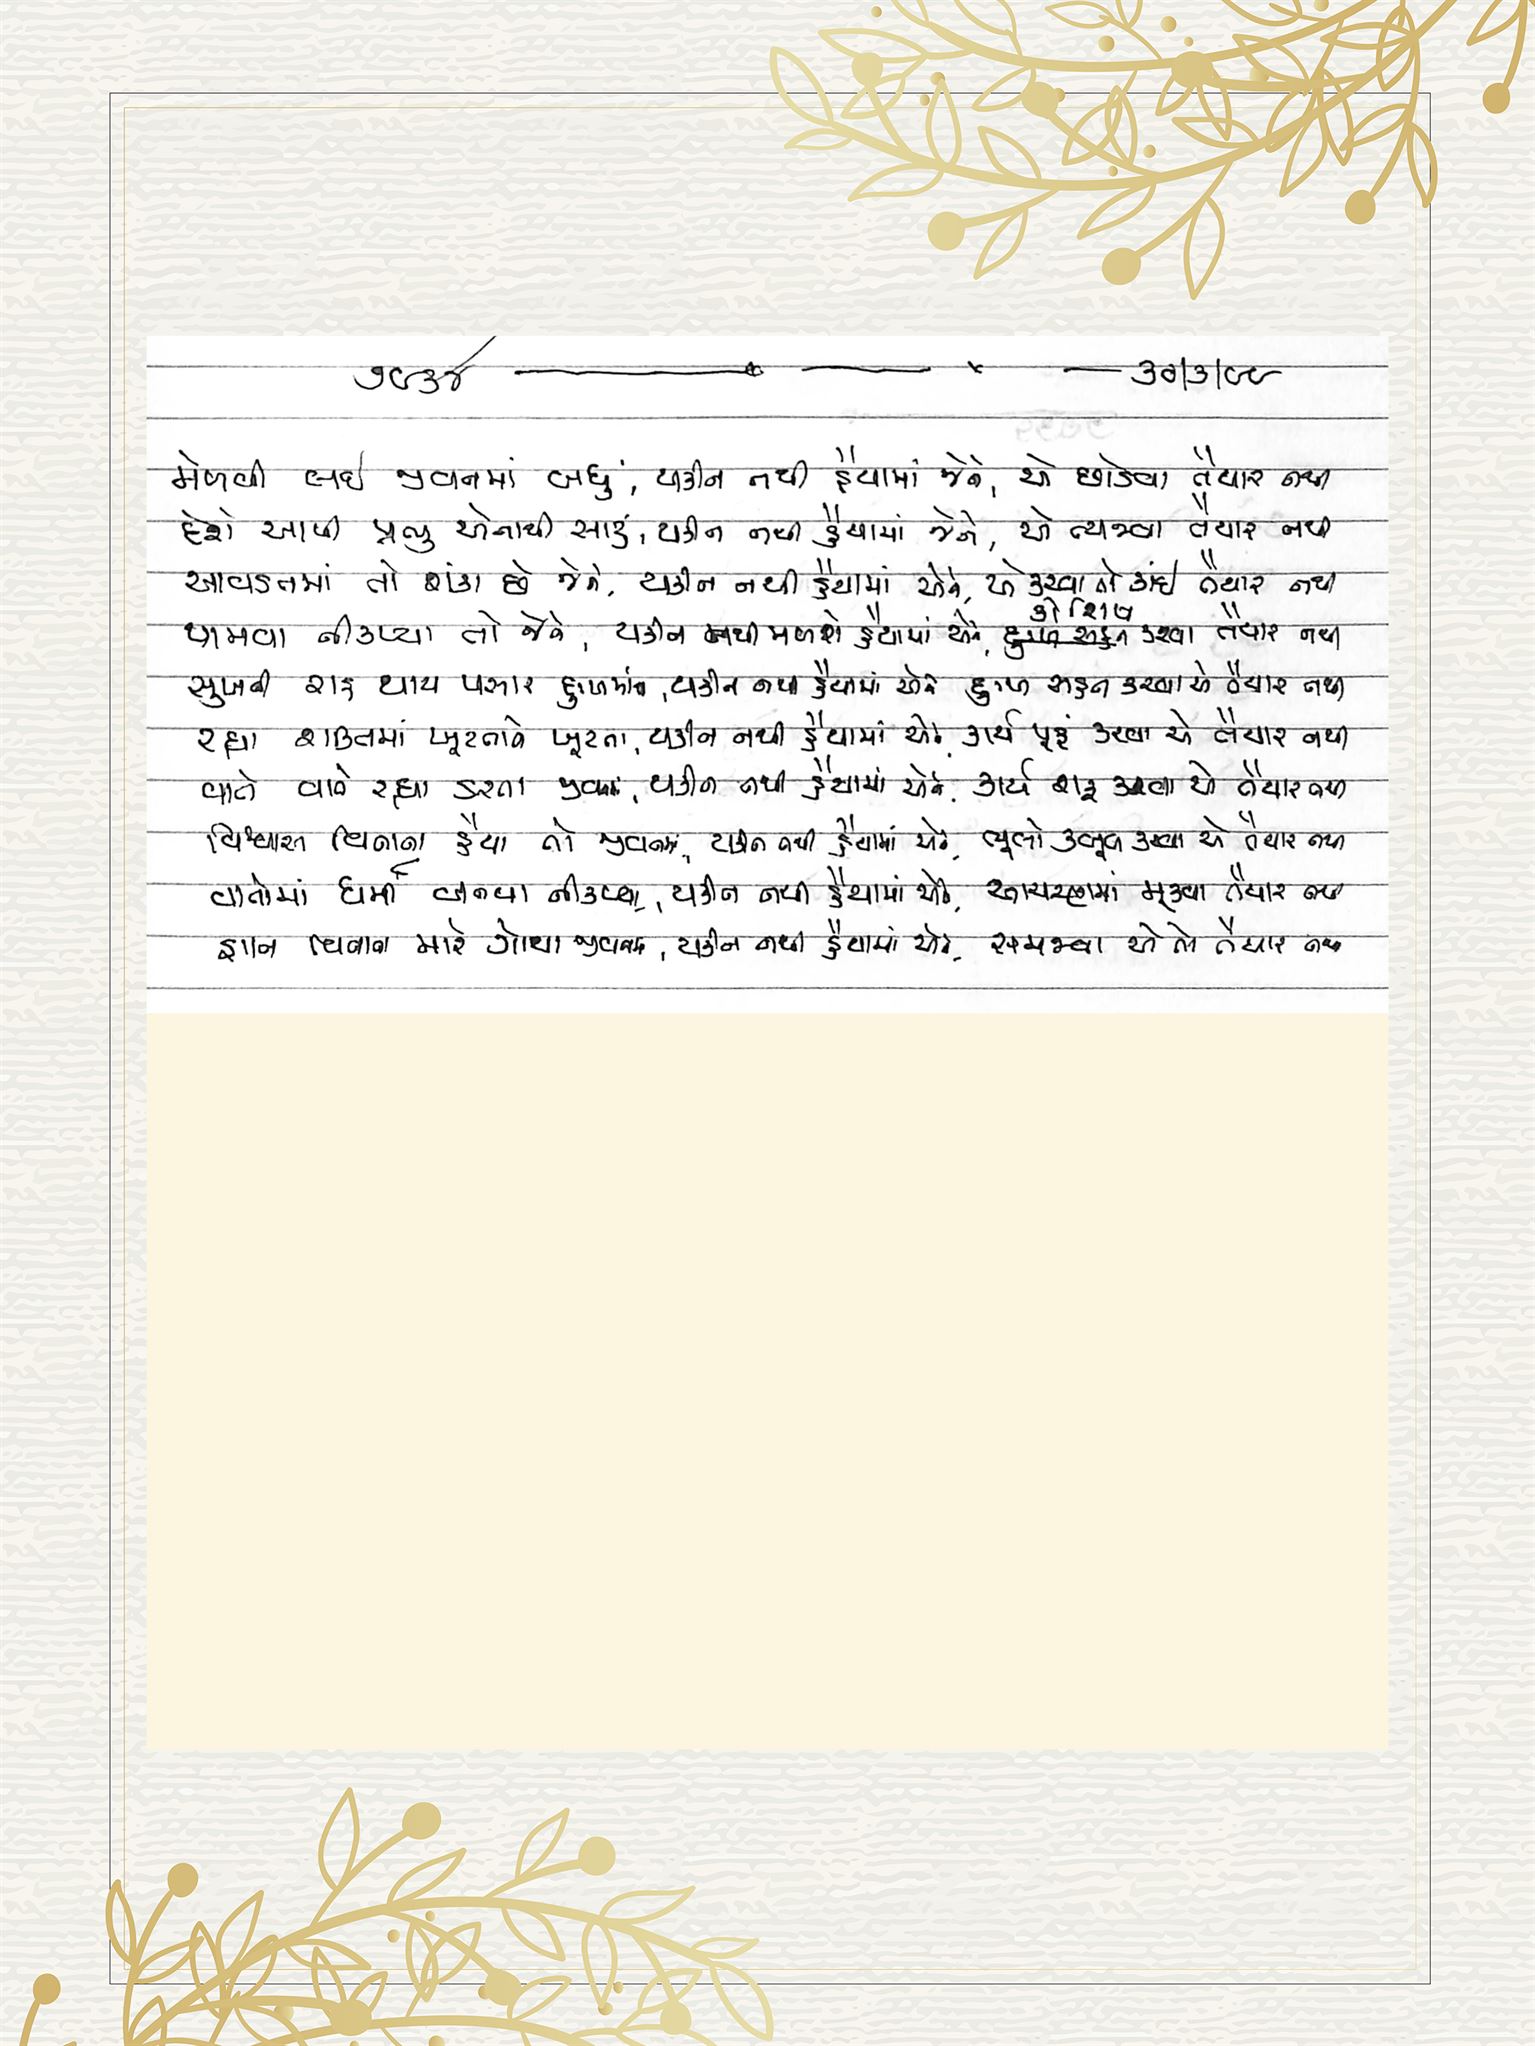 ૭૯૩૪ ૩૦/૩/૯૯
મેળવી લઈ જીવનમાં બધું, યકીન નથી હૈયામાં જેને, એ છોડવા તૈયાર નથી
દેશે આપી પ્રભુ એનાથી સારું, યકીન નથી હૈયામાં જેને, એ ત્યજવા તૈયાર નથી
આવડતમાં તો શંકા છે જેને, યકીન નથી હૈયામાં એને, એ કરવા તો કાંઈ તૈયાર નથી
પામવા નીકળ્યા તો જેને, યકીન નથી મળશે હૈયામાં એને, કોશિશ કરવા તૈયાર નથી
સુખની રાહ થાય પસાર દુઃખમાંથી, યકીન નથી હૈયામાં એને દુઃખ સહન કરવા એ તૈયાર નથી
રહ્યા શક્તિમાં ખૂટતાને ખૂટતા, યકીન નથી હૈયામાં એને, કાર્ય પૂરું કરવા એ તૈયાર નથી
વાતે વાતે રહ્યા ડરતા જીવનમાં, યકીન નથી હૈયામાં એને, કાર્ય શરૂ કરવા એ તૈયાર નથી
વિશ્વાસ વિનાના હૈયા તો જીવનમાં, યકીન નથી હૈયામાં એને, ભૂલો કબૂલ કરવા એ તૈયાર નથી
વાતોમાં ધર્મી બનવા નીકળ્યા, યકીન નથી હૈયામાં એને, આચરણમાં મૂકવા તૈયાર નથી
જ્ઞાન વિનાના મારે ગોથા જીવનમાં, યકીન નથી હૈયામાં એને, સમજવા એ તો તૈયાર નથી